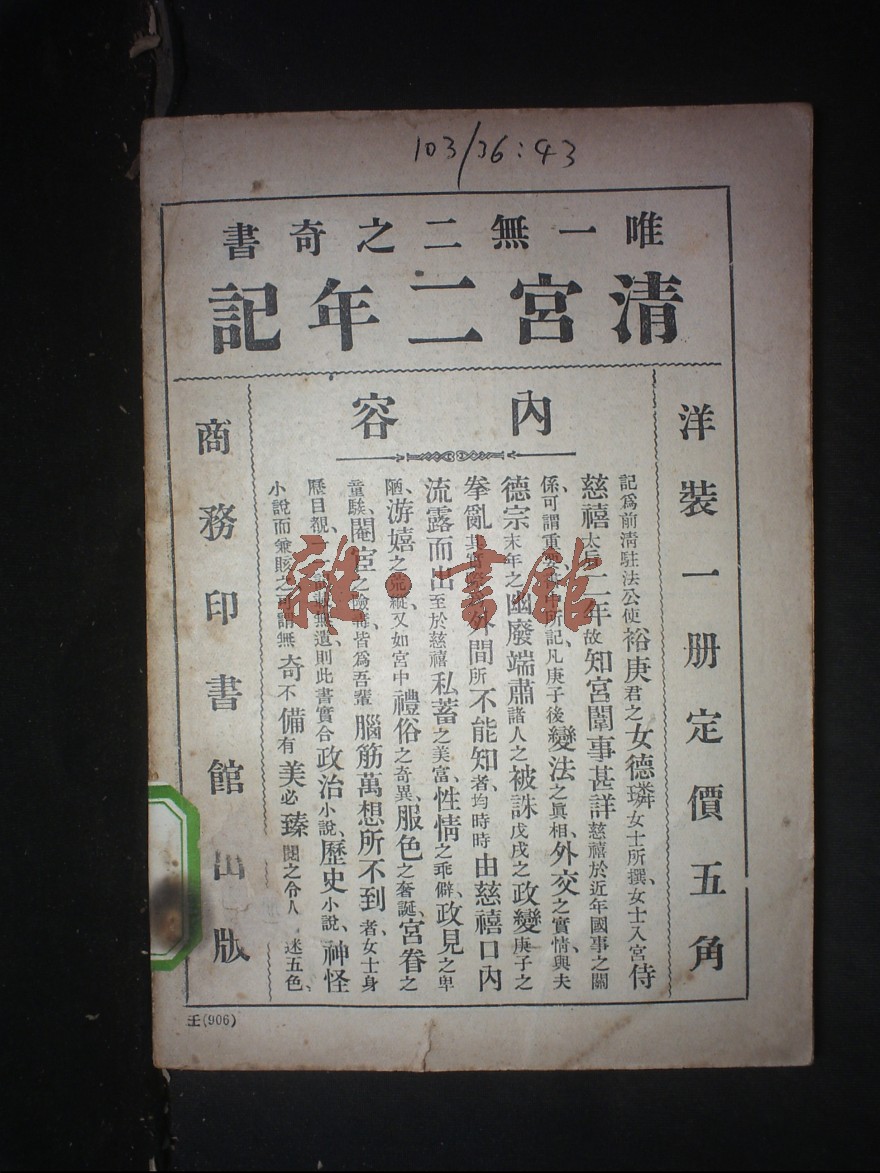 103/36:43
唯一無二之奇書
清宮二年記
洋裝一册定價五角
內容
記爲前淸駐法公使裕庚君之女德璘女士所撰、女士入宮侍
慈禧太后二年故知宮闈事甚詳慈禧於近年國事之關
係、可謂重要所記、凡庚子後變法之眞相、外交之實情、與夫
德宗末年之幽廢端肅諸人之被誅戊戌之政變庚子之
拳亂其實外間所不能知者均時時由慈禧口內
流露而出至於慈禧私蓄之美富、性情之乖僻、政見之卑
陋、游嬉之荒縱、又如宮中禮俗之奇異、服色之奢誕、宮眷之
童騃、閹宦之險毒皆爲吾輩腦筋萬想所不到者女士身
歷目覩、一一無遺則此書實合政治小說、歷史小說、神怪
小說而兼賅之可謂無奇不備有美必臻閱之令人迷五色、
商務印書館出版
王(906)
雜·書館